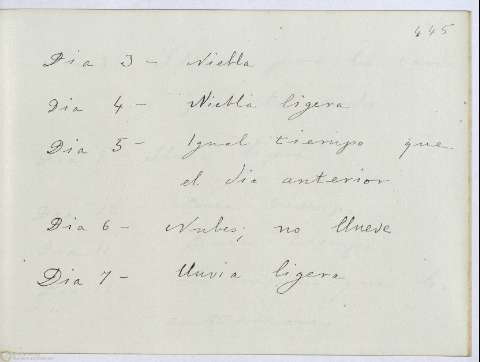 445
Dia 3 - Niebla
Dia 4 - Niebla ligera
Dia 5 - Igual tiempo que
el dia anterior
Dia 6 - Nubes; no llueve
Dia 7 - Lluvia ligera